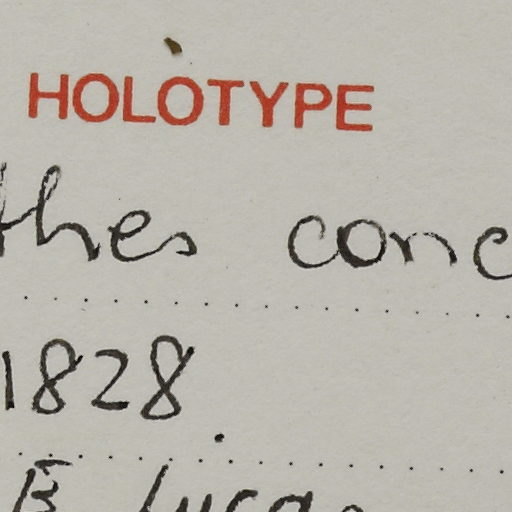 HOLOTYPE
thes conc
1828.
E Lucas